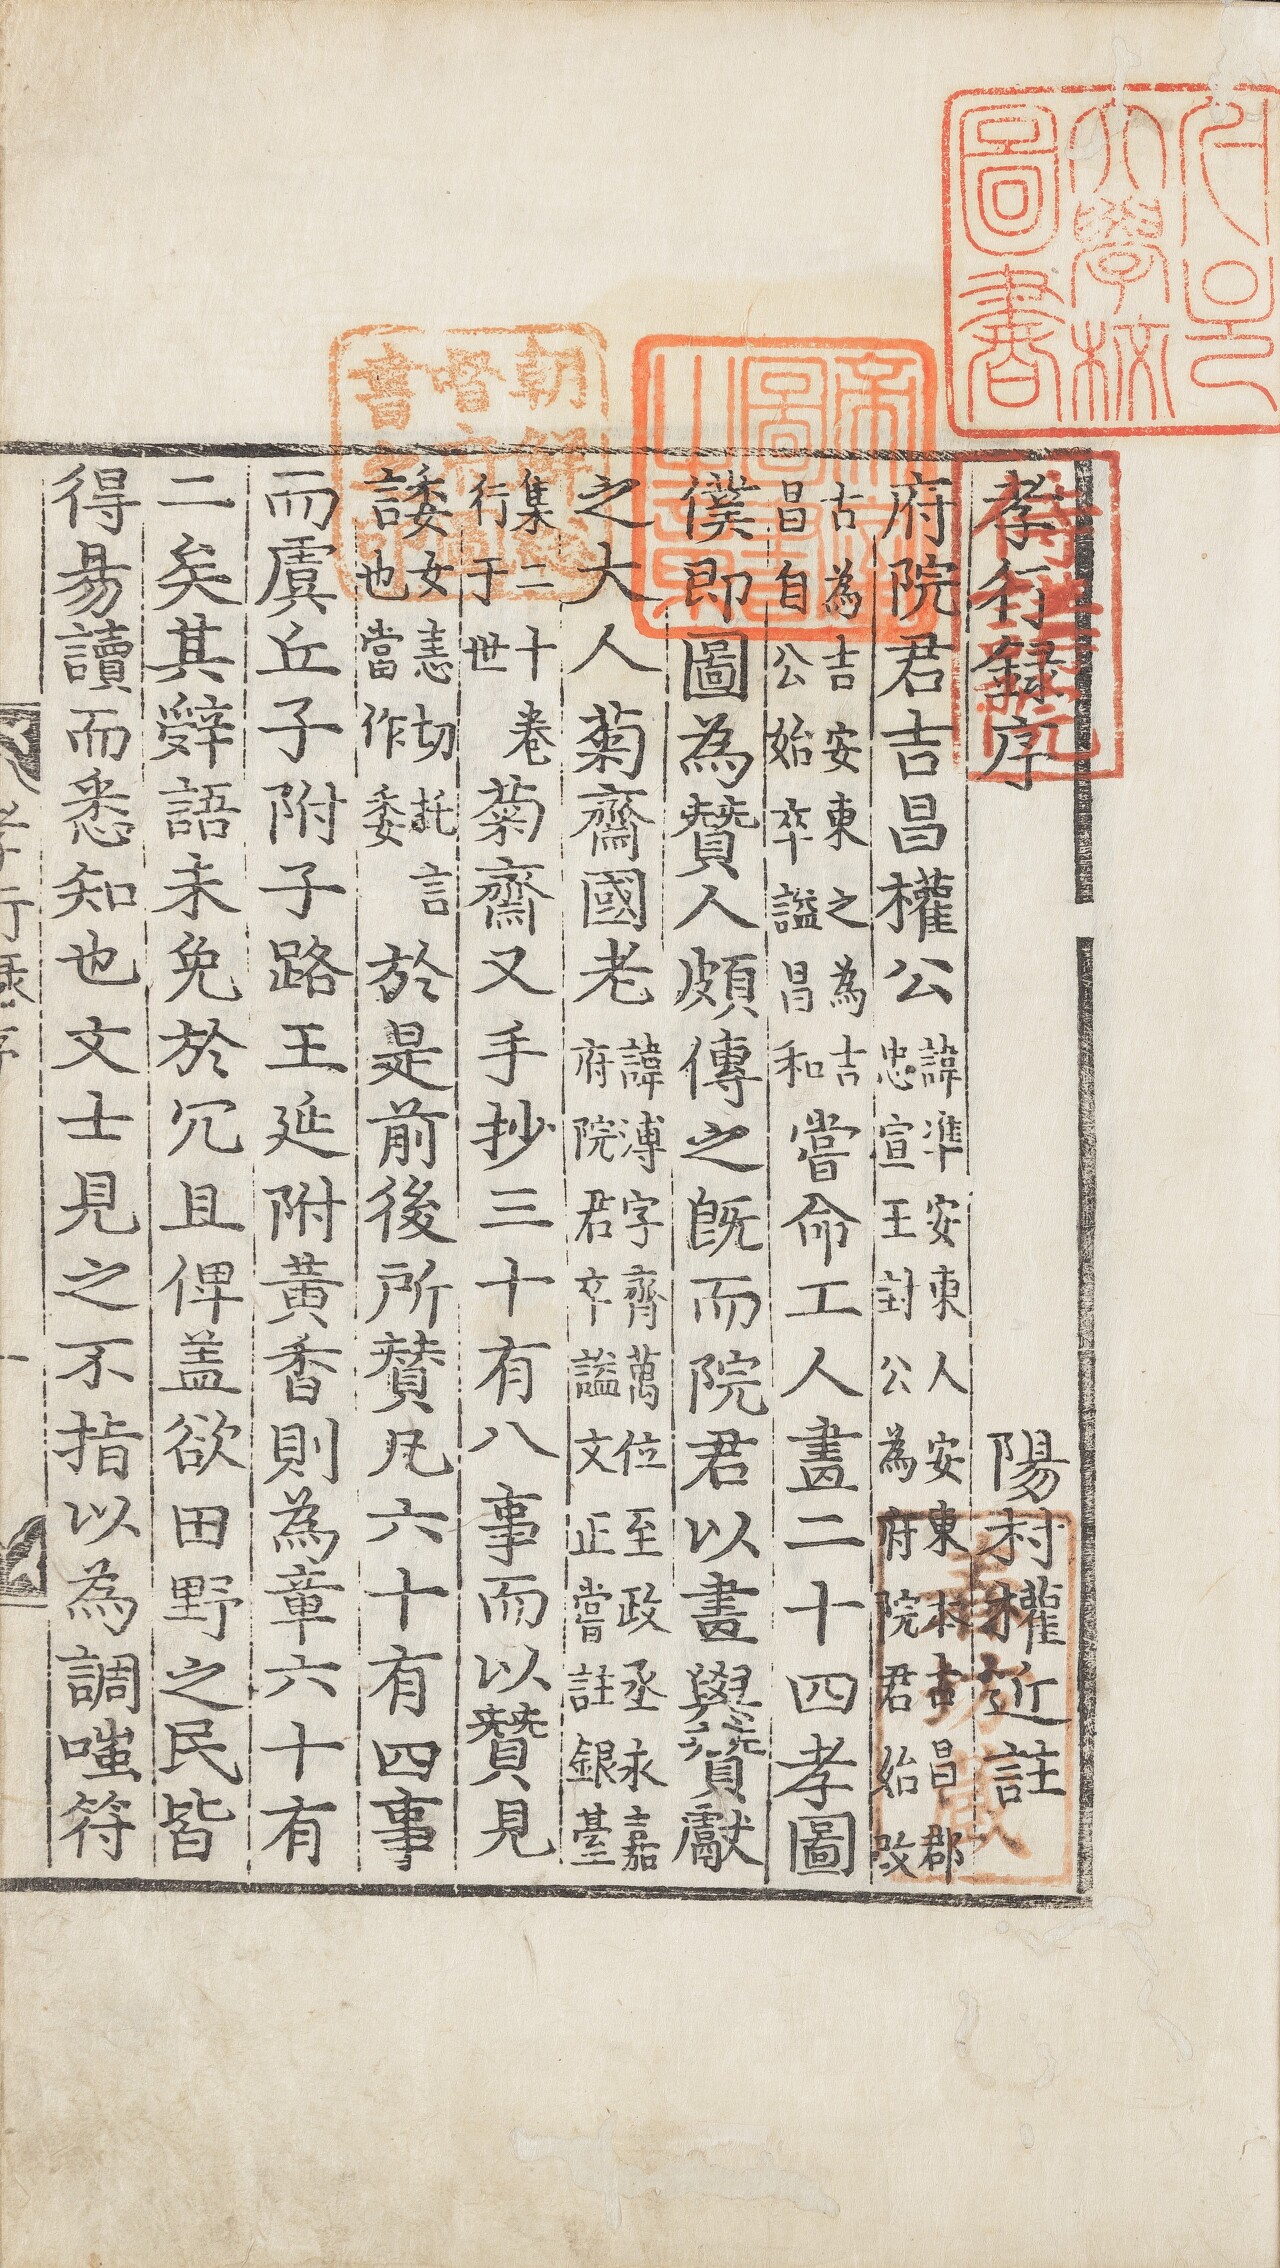 孝行録序　陽村權近註
府院君吉昌權公諱準安東人安東本古昌郡忠宣王封公為府院君始改
古為吉安東之為吉昌自公始卒謚昌和嘗命工人畫二十四孝圖
僕即圖為贊人頗傳之旣而院君以畫與贊獻
之大人菊齋國老諱溥字齊萬位至政丞永嘉府院君卒謚文正嘗註銀臺
集二十卷行于世菊齋又手抄三十有八事而以贊見
諉女恚切託言諉也當作委於是前後所贊凡六十有四事
而虞丘子附子路王延附黃香則為章六十有
二矣其辭語未免於冗且俚盖欲田野之民皆
得易讀而悉知也文士見之不指以為調嗤符
孝行録序
一
圖書
朝鮮